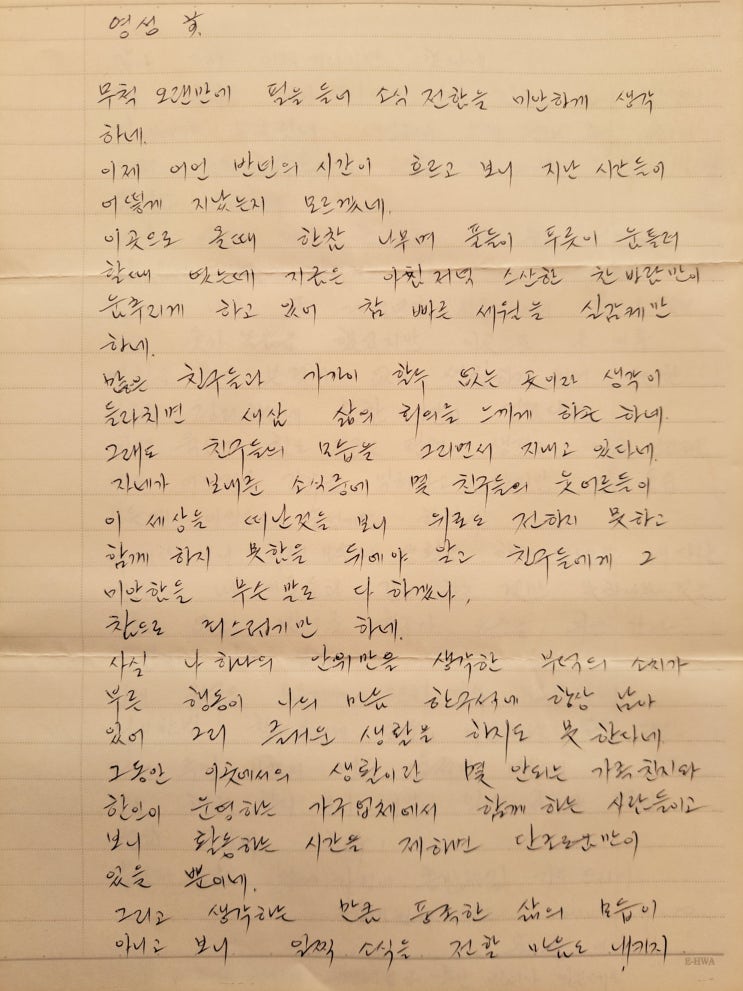 영성 兄.
무척 오랜만에 필을 들어 소식 전함을 미안하게 생각
하네.
이제 어언 반년의 시간이 흐르고 보니 지난 시간들이
어떻게 지났는지 모르겠네.
이곳으로 올때 한참 나무며 풀들이 푸릇이 움틀려
할때 였는데 지금은 아침저녁 스산한 찬바람만이
움추리게 하고 있어 참 빠른 세월을 실감케만
하네.
많은 친구들과 가까이 할수 없는 곳이라 생각이
들라치면 새삼 삶의 회의를 느끼게 하곤 하네.
그래도 친구들의 모습을 그리면서 지내고 있다네.
자네가 보내준 소식중에 몇 친구들의 웃어른들이
이 세상을 떠난것을 보니 위로도 전하지 못하고
함께 하지 못함을 뒤에야 알고 친구들에게 그
미안함을 무슨 말로 다 하겠나,
참으로 죄스럽기만 하네.
사실 나 하나의 안위만을 생각한 부덕의 소치가
부른 행동이 나의 마음 한구석에 항상 남아
있어 그리 즐거운 생활을 하지도 못 한다네.
그동안 이곳에서의 생활이란 몇 안되는 가족친지와
한인이 운영하는 가구업체에서 함께 하는 사람들이고
보니 활동하는 시간을 제하면 단조로움만이
있을 뿐이네.
그리고 생각하는 만큼 풍족한 삶의 모습이
아니고 보니 일찍 소식을 전할 마음도 내키지
E-HWA